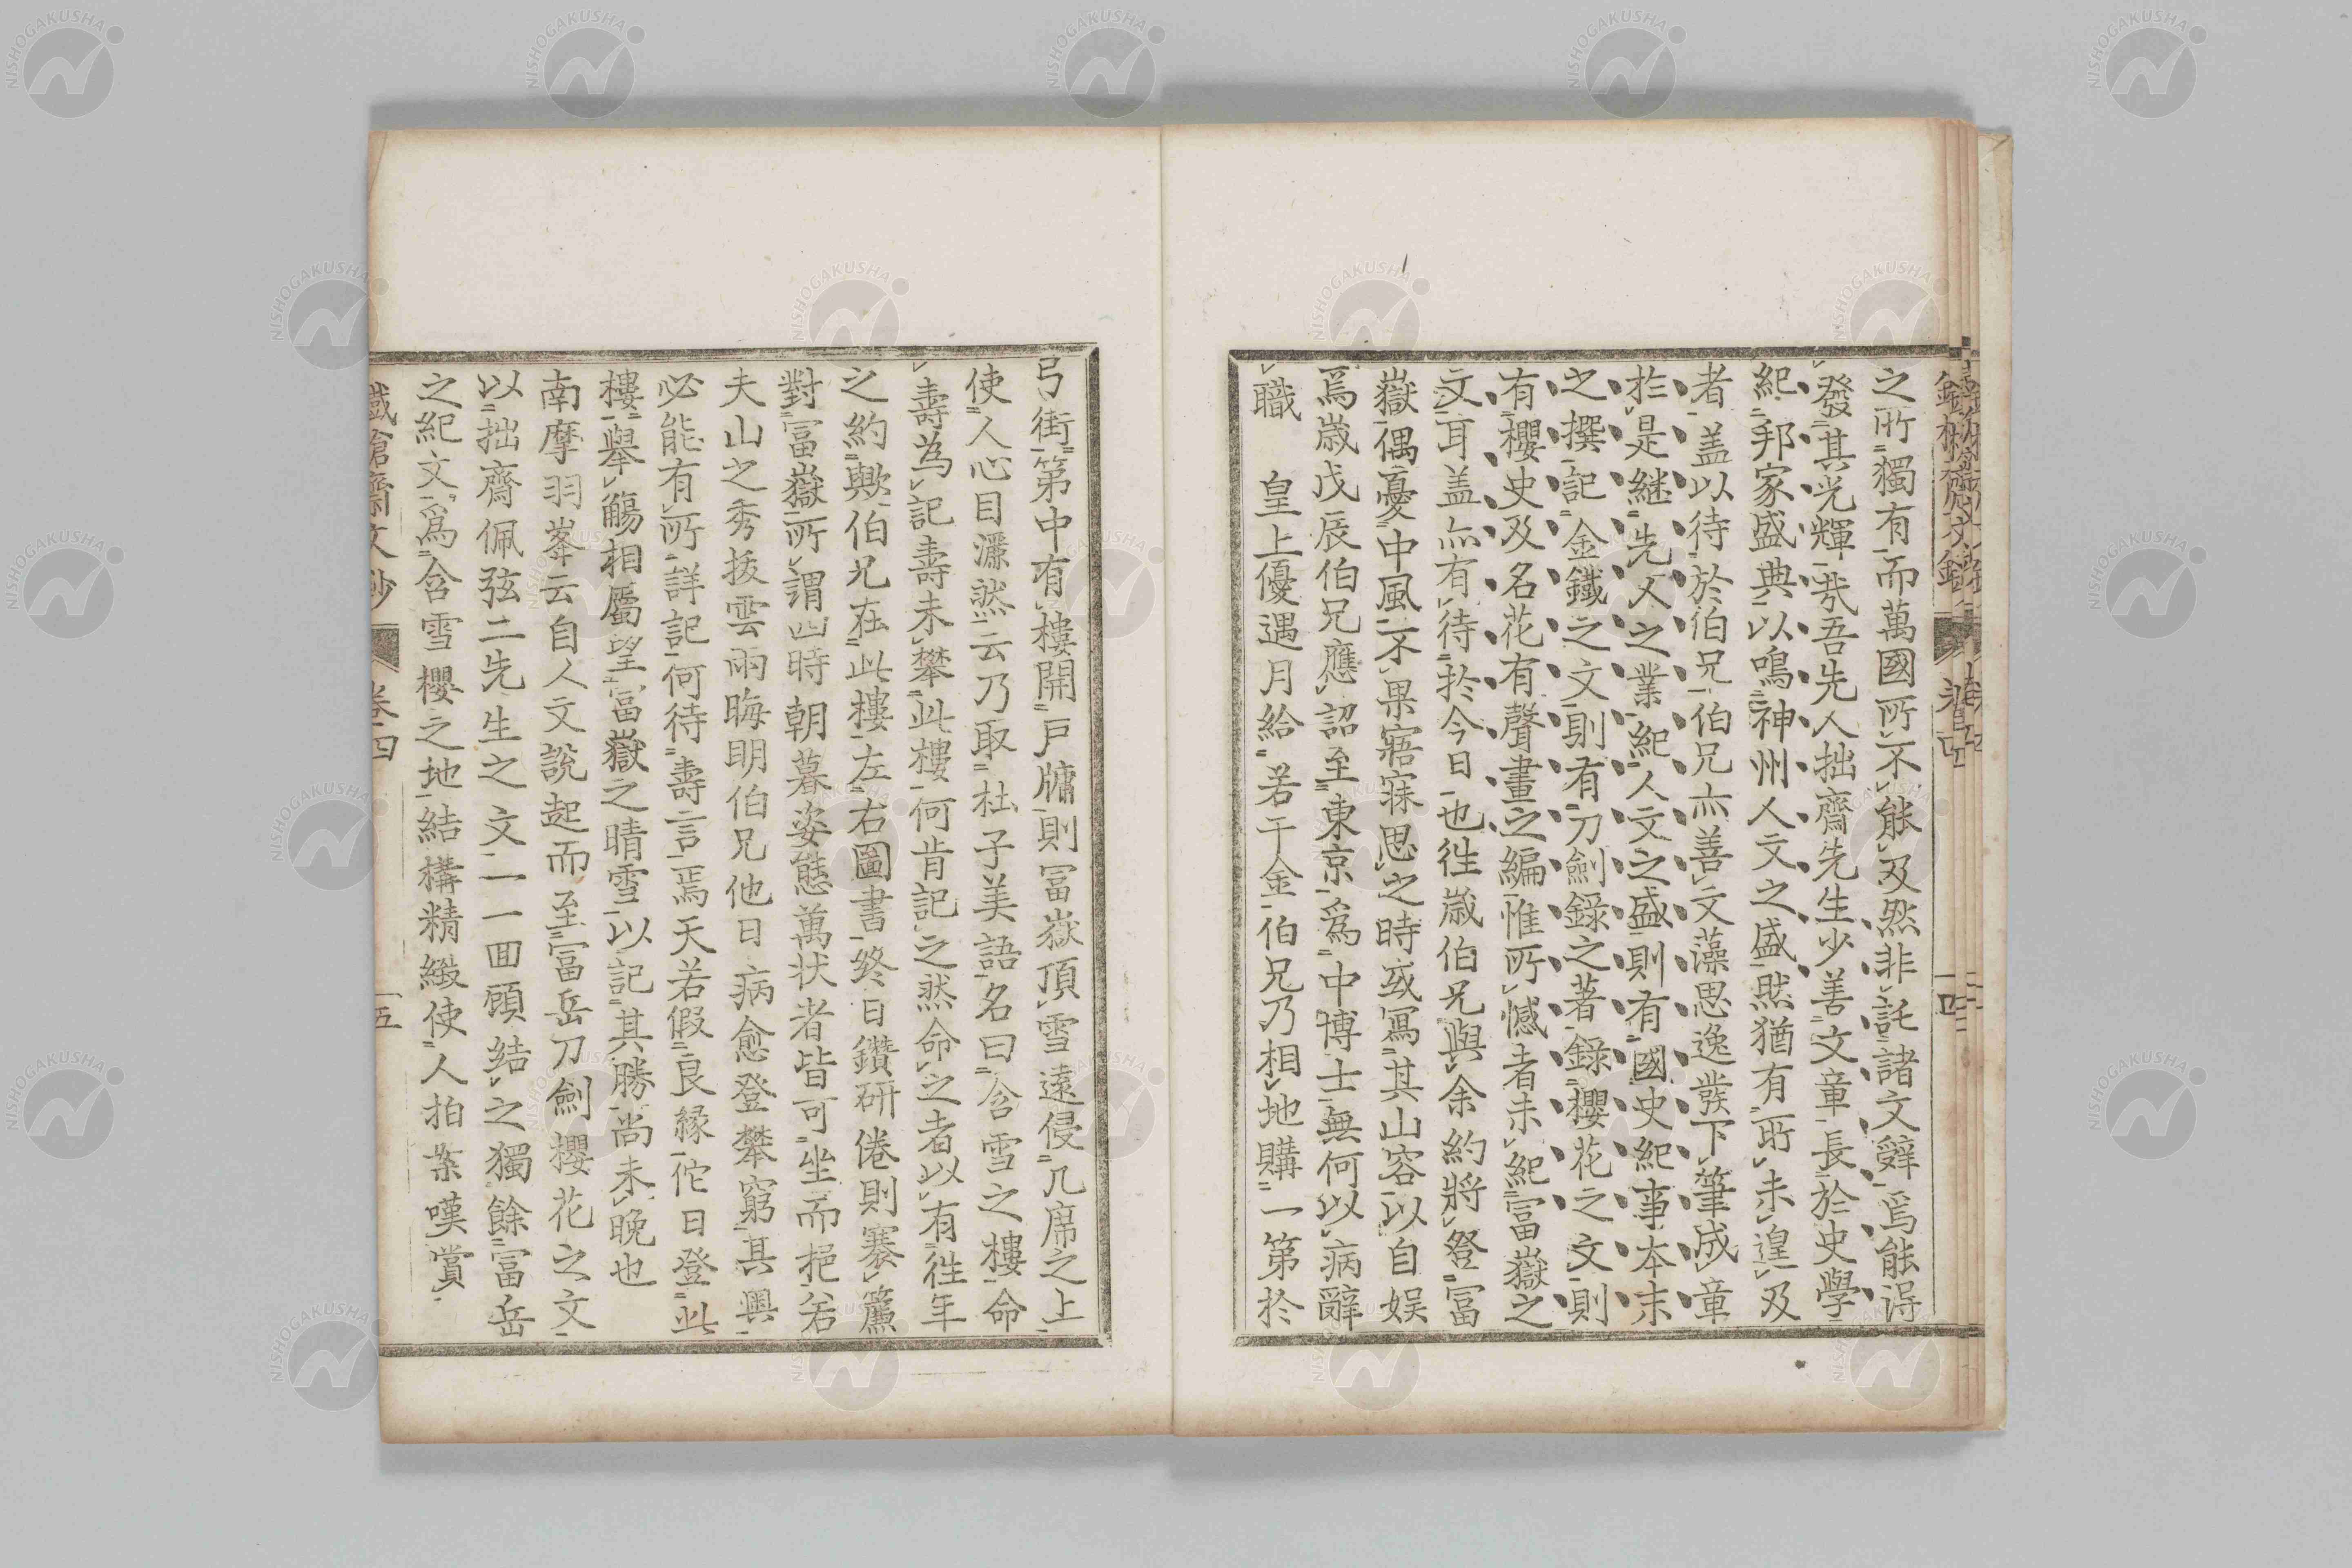 之所獨有而萬國所不能及然非託諸文辭焉能得
發其光輝哉吾先人拙齋先生少善文章長於史學
紀邦家盛典以鳴神州人文之盛然猶有所未遑及
者盖以待於伯兄伯兄亦善文藻思逸發下筆成章
於是継先人之業紀人文之盛則有國史紀事本末
之撰記金鐵之文則有刀劍錄之著錄櫻花之文則
有櫻史及名花有聲畫之編惟所憾者未紀富嶽之
文耳盖亦有待於今日也徃歳伯兄與余約將登富
嶽偶憂中風不果寤寐思之時或寫其山容以自娯
焉歳戊辰伯兄應詔至東京爲中博士無何以病辭
職　皇上優遇月給若干金伯兄乃相地購一第於
弓街第中有樓開戸牖則富嶽頂雪遠侵几席之上
使人心目灑然云乃取杜子美語名曰含雪之樓命
壽為記壽未攀此樓何肯記之然命之者以有徃年
之約歟伯兄在此樓左右圖書終日鑽研倦則褰簾
對富嶽所謂四時朝暮姿態萬状者皆可坐而挹若
夫山之秀抜雲雨晦明伯兄他日病愈登攀窮其興
必能有所詳記何待壽言焉天若假良縁佗日登此
樓舉觴相屬望富嶽之晴雪以記其勝尚未晩也
南摩羽峯云自人文說起而至富岳刀劍櫻花之文
以拙齋佩弦二先生之文一一回顧結之獨餘富岳
之紀文爲含雪樓之地結構精緻使人拍案嘆賞
鐵槍齋文鈔　卷四　五